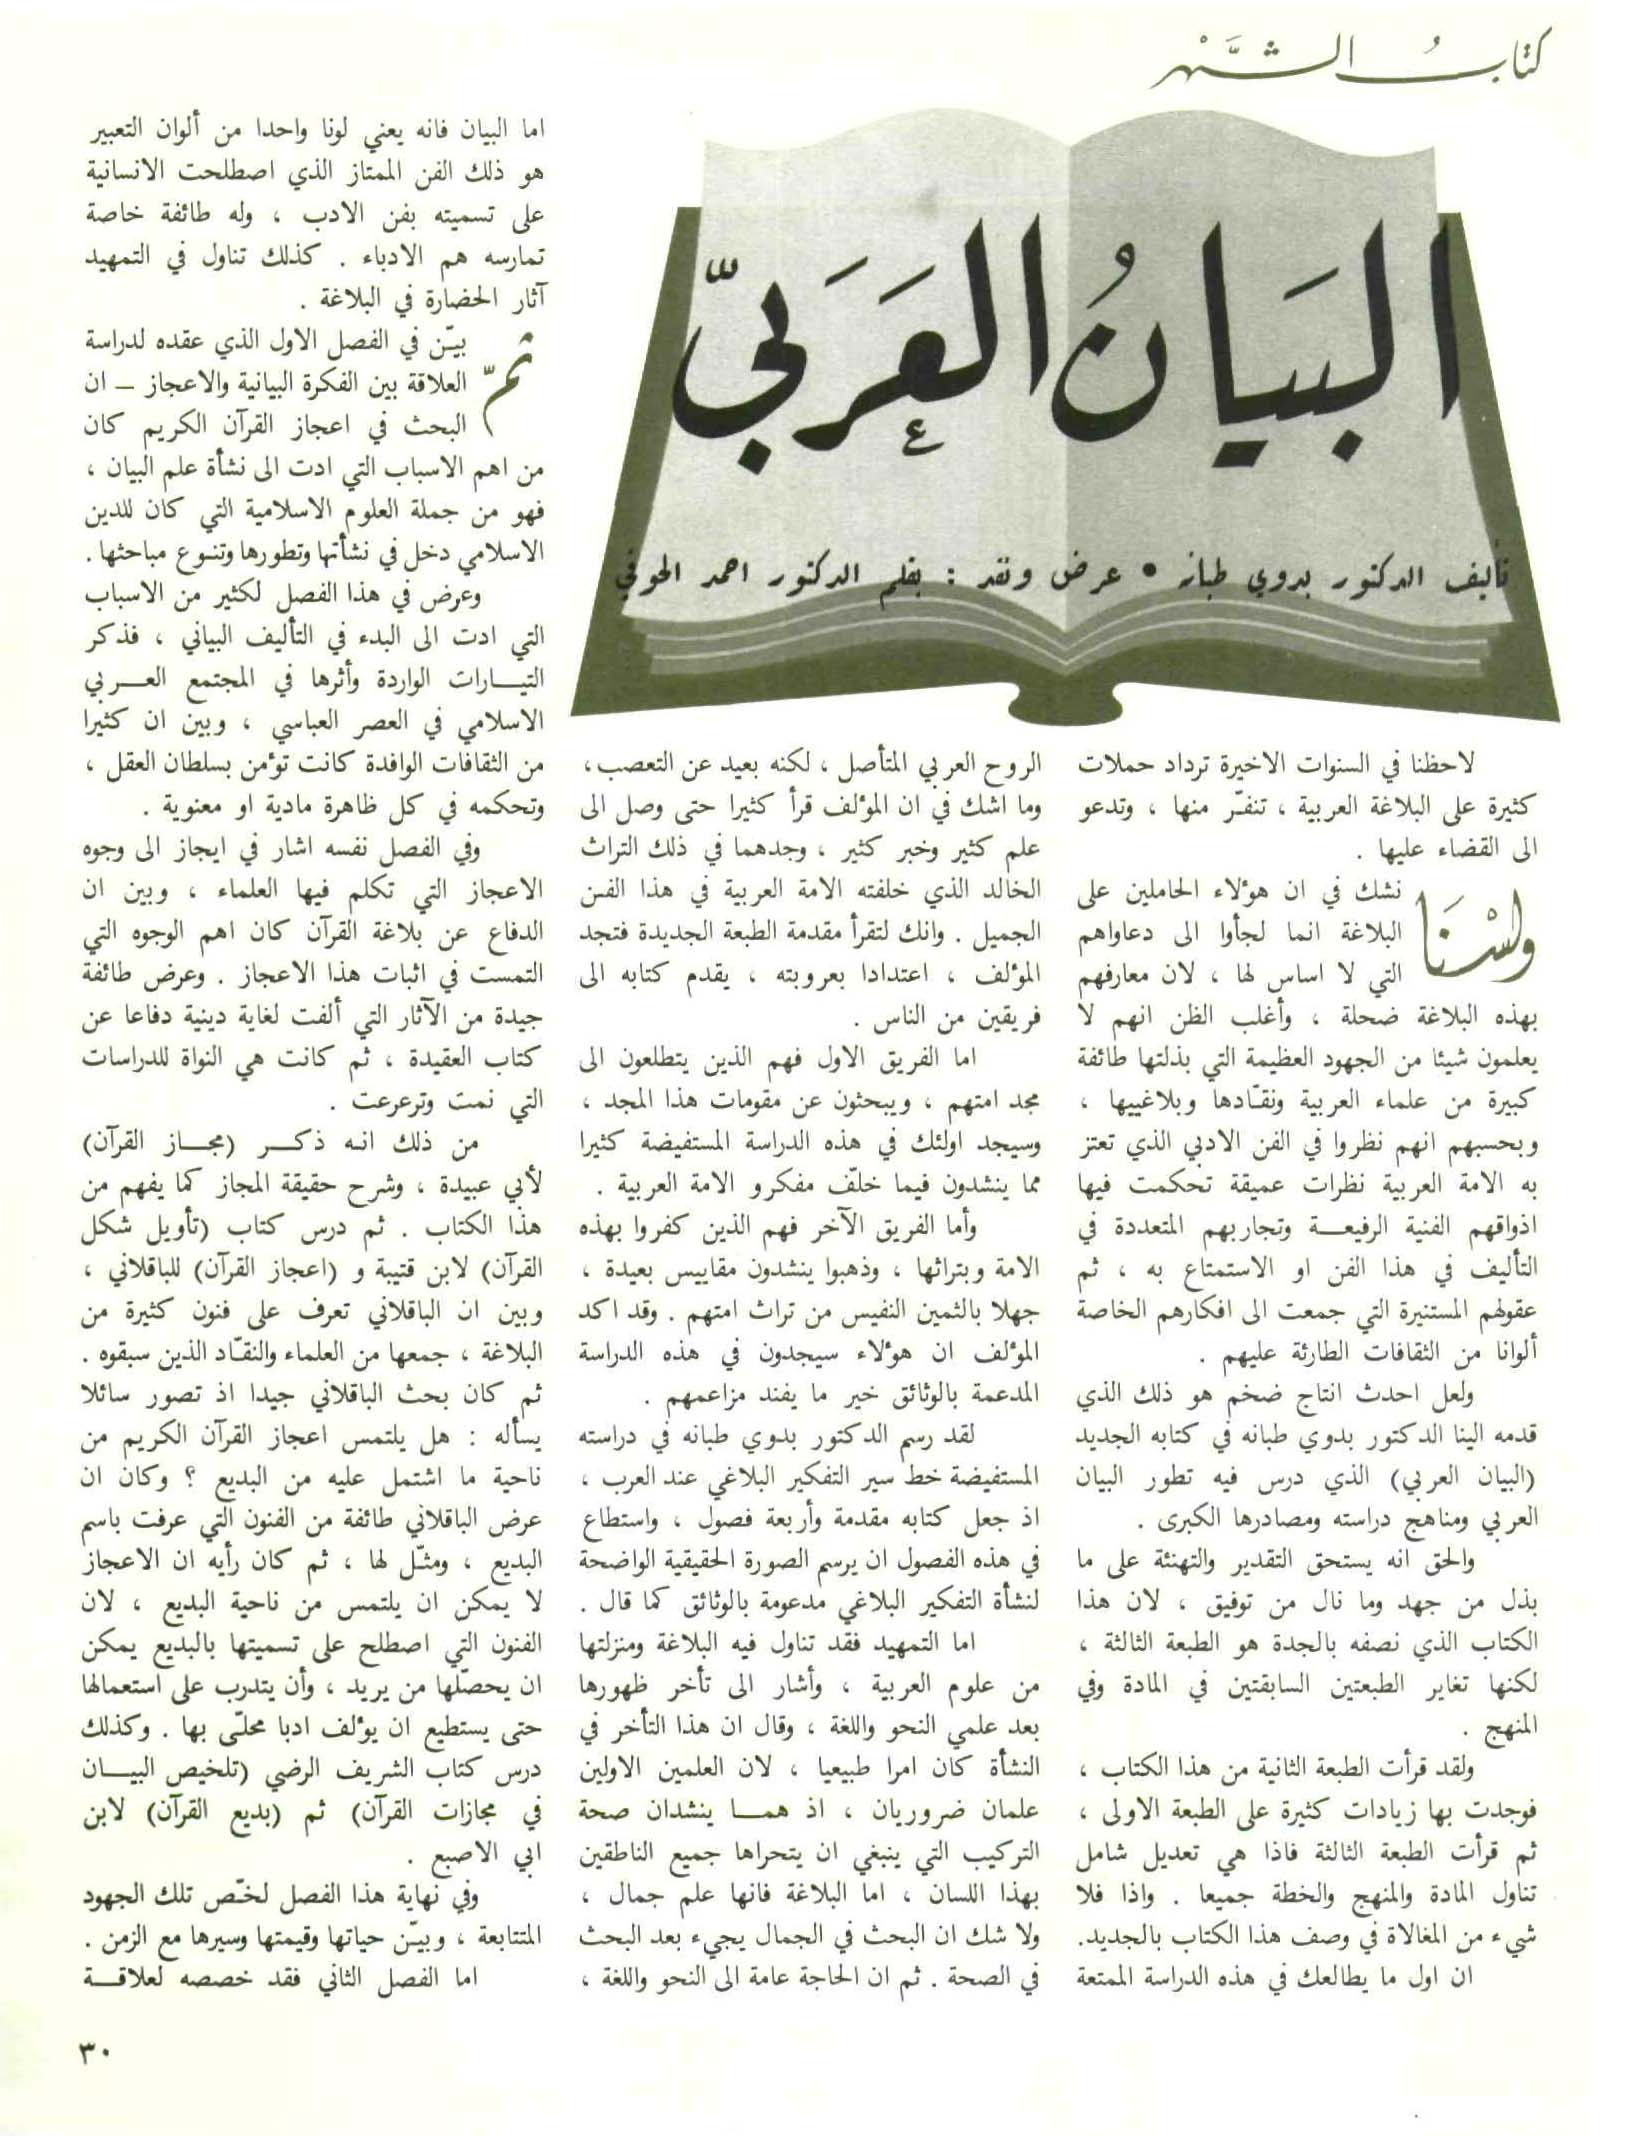 كتابُ الشَّهْر
البَيَانُ العَرَبيّ
تأليف الدكتور بدوي طبانه • عرض ونقد : بقلم الدكتور احمد الحوفي
لاحظنا في السنوات الاخيرة ترداد حملات
كثيرة على البلاغة العربية ، تنفّر منها ، وتدعو
الى القضاء عليها .
ولسْنَا نشك في ان هؤلاء الحاملين على
البلاغة انما لجأوا الى دعاواهم
التي لا اساس لها ، لان معارفهم
بهذه البلاغة ضحلة ، وأغلب الظن انهم لا
يعلمون شيئا من الجهود العظيمة التي بذلتها طائفة
كبيرة من علماء العربية ونقّادها وبلاغييها ،
وبحسبهم انهم نظروا في الفن الادبي الذي تعتز
به الامة العربية نظرات عميقة تحكمت فيها
اذواقهم الفنية الرفيعـة وتجاربهم المتعددة في
التأليف في هذا الفن او الاستمتاع به ، ثم
عقولهم المستنيرة التي جمعت الى افكارهم الخاصة
ألوانا من الثقافات الطارئة عليهم .
ولعل احدث انتاج ضخم هو ذلك الذي
قدمه الينا الدكتور بدوي طبانه في كتابه الجديد
(البيان العربي) الذي درس فيه تطور البيان
العربي ومناهج دراسته ومصادرها الكبرى .
والحق انه يستحق التقدير والتهنئة على ما
بذل من جهد وما نال من توفيق ، لان هذا
الكتاب الذي نصفه بالجدة هو الطبعة الثالثة ،
لكنها تغاير الطبعتين السابقتين في المادة وفي
المنهج .
ولقد قرأت الطبعة الثانية من هذا الكتاب ،
فوجدت بها زيادات كثيرة على الطبعة الاولى ،
ثم قرأت الطبعة الثالثة فاذا هي تعديل شامل
تناول المادة والمنهج والخطة جميعا . واذا فلا
شيء من المغالاة في وصف هذا الكتاب بالجديد.
ان اول ما يطالعك في هذه الدراسة الممتعة
الروح العربي المتأصل ، لكنه بعيد عن التعصب،
وما اشك في ان المؤلف قرأ كثيرا حتى وصل الى
علم كثير وخبر كثير ، وجدهما في ذلك التراث
الخالد الذي خلفته الامة العربية في هذا الفـن
الجميل . وانك لتقرأ مقدمة الطبعة الجديدة فتجد
المؤلف ، اعتدادا بعروبته ، يقدم كتابه الى
فريقين من الناس .
اما الفريق الاول فهم الذين يتطلعون الى
مجد امتهم ، ويبحثون عن مقومات هذا المجد ،
وسيجد اولئك في هذه الدراسة المستفيضة كثيرا
مما ينشدون فيما خلّف مفكرو الامة العربية .
وأما الفريق الآخر فهم الذين كفروا بهذه
الامة وبتراثها ، وذهبوا ينشدون مقاييس بعيدة ،
جهلا بالثمين النفيس من تراث امتهم . وقد اكد
المؤلف ان هؤلاء سيجدون في هذه الدراسة
المدعمة بالوثائق خير ما يفند مزاعمهم .
لقد رسم الدكتور بدوي طبانه في دراسته
المستفيضة خط سير التفكير البلاغي عند العرب ،
اذ جعل كتابه مقدمة وأربعة فصول ، واستطاع
في هذه الفصول ان يرسم الصورة الحقيقية الواضحة
لنشأة التفكير البلاغي مدعومة بالوثائق كما قال .
اما التمهيد فقد تناول فيه البلاغة ومنزلتها
من علوم العربية ، وأشار الى تأخر ظهورها
بعد علمي النحو واللغة ، وقال ان هذا التأخر في
النشأة كان امرا طبيعيا ، لان العلمين الاولين
علمان ضروريان ، اذ همـا ينشدان صحة
التركيب التي ينبغي ان يتحراها جميع الناطقين
بهذا اللسان ، اما البلاغة فانها علم جمال ،
ولا شك ان البحث في الجمال يجيء بعد البحث
في الصحة . ثم ان الحاجة عامة الى النحو واللغة ،
اما البيان فانه يعني لونا واحدا من ألوان التعبير
هو ذلك الفن الممتاز الذي اصطلحت الانسانية
على تسميته بفن الادب ، وله طائفة خاصة
تمارسه هم الادباء . كذلك تناول في التمهيد
آثار الحضارة في البلاغة .
ثمّ بيّن في الفصل الاول الذي عقده لدراسة
العلاقة بين الفكرة البيانية والاعجاز – ان
البحث في اعجاز القرآن الكريم كان
من اهم الاسباب التي ادت الى نشأة علم البيان ،
فهو من جملة العلوم الاسلامية التي كان للدين
الاسلامي دخل في نشأتها وتطورها وتنوع مباحثها.
وعرض في هذا الفصل لكثير من الاسباب
التي ادت الى البدء في التأليف البياني ، فذكر
التيـارات الواردة وأثرها في المجتمع العـربي
الاسلامي في العصر العباسي ، وبين ان كثيرا
من الثقافات الوافدة كانت تؤمن بسلطان العقل ،
وتحكمه في كل ظاهرة مادية او معنوية .
وفي الفصل نفسه اشار في ايجاز الى وجوه
الاعجاز التي تكلم فيها العلماء ، وبين ان
الدفاع عن بلاغة القرآن كان اهم الوجوه التي
التمست في اثبات هذا الاعجاز . وعرض طائفة
جيدة من الآثار التي ألفت لغاية دينية دفاعا عن
كتاب العقيدة ، ثم كانت هي النواة للدراسات
التي نمت وترعرعت .
من ذلك انـه ذكـر (مجـاز القرآن)
لأبي عبيدة ، وشرح حقيقة المجاز كما يفهم من
هذا الكتاب . ثم درس كتاب (تأويل شكل
القرآن) لابن قتيبة و (اعجاز القرآن) للباقلاني ،
وبين ان الباقلاني تعرف على فنون كثيرة من
البلاغة ، جمعها من العلماء والنقّاد الذين سبقوه .
ثم كان بحث الباقلاني جيدا اذ تصور سائلا
يسأله : هل يلتمس اعجاز القرآن الكريم من
ناحية ما اشتمل عليه من البديع ؟ وكان ان
عرض الباقلاني طائفة من الفنون التي عرفت باسم
البديع ، ومثّل لها ، ثم كان رأيه ان الاعجاز
لا يمكن ان يلتمس من ناحية البديع ، لان
الفنون التي اصطلح على تسميتها بالبديع يمكن
ان يحصّلها من يريد ، وأن يتدرب على استعمالها
حتى يستطيع ان يؤلف ادبا محلّى بها . وكذلك
درس كتاب الشريف الرضي (تلخيص البيـان
في مجازات القرآن) ثم (بديع القرآن) لابن
ابي الاصبع .
وفي نهاية هذا الفصل لخّص تلك الجهود
المتتابعة ، وبيّن حياتها وقيمتها وسيرها مع الزمن .
اما الفصل الثاني فقد خصصه لعلاقـة
٣٠